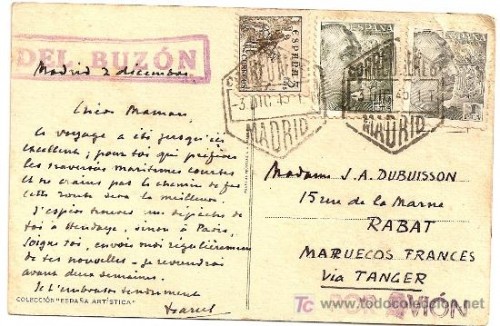 DEL BUZÓN
Madrid 2 décembre
Chère Maman,
Le voyage a été jusqu'ici
excellent ; pour toi qui préfères
les traversées maritimes courtes
et ne crains pas le chemin de fer
cette route sera la meilleure.
J'espère trouver une dépêche de
toi à Hendaye, sinon à Paris,
soigne toi, envoie moi régulièrement
de tes nouvelles - je reviendrai
avant deux semaines.
Je t'embrasse tendrement
COLECCIÓN "ESPAÑA ARTÍSTICA"
ESPAÑA
ESPAÑA
MADRID
MADRID
Madame J.A. DUBUISSON
15 rue de la Marne
RABAT
MARUECOS FRANCES
Via TANGER
AVIÓN
TC todocoleccion.net